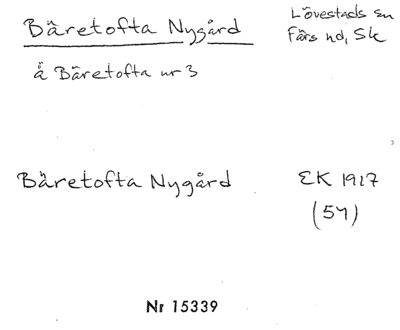 Bäretofta Nygård
Lövestads sn
Färs hd, Sk
å Bäretofta nr 3
Bäretofta Nygård
EK 1917
(54)
Nr 15339